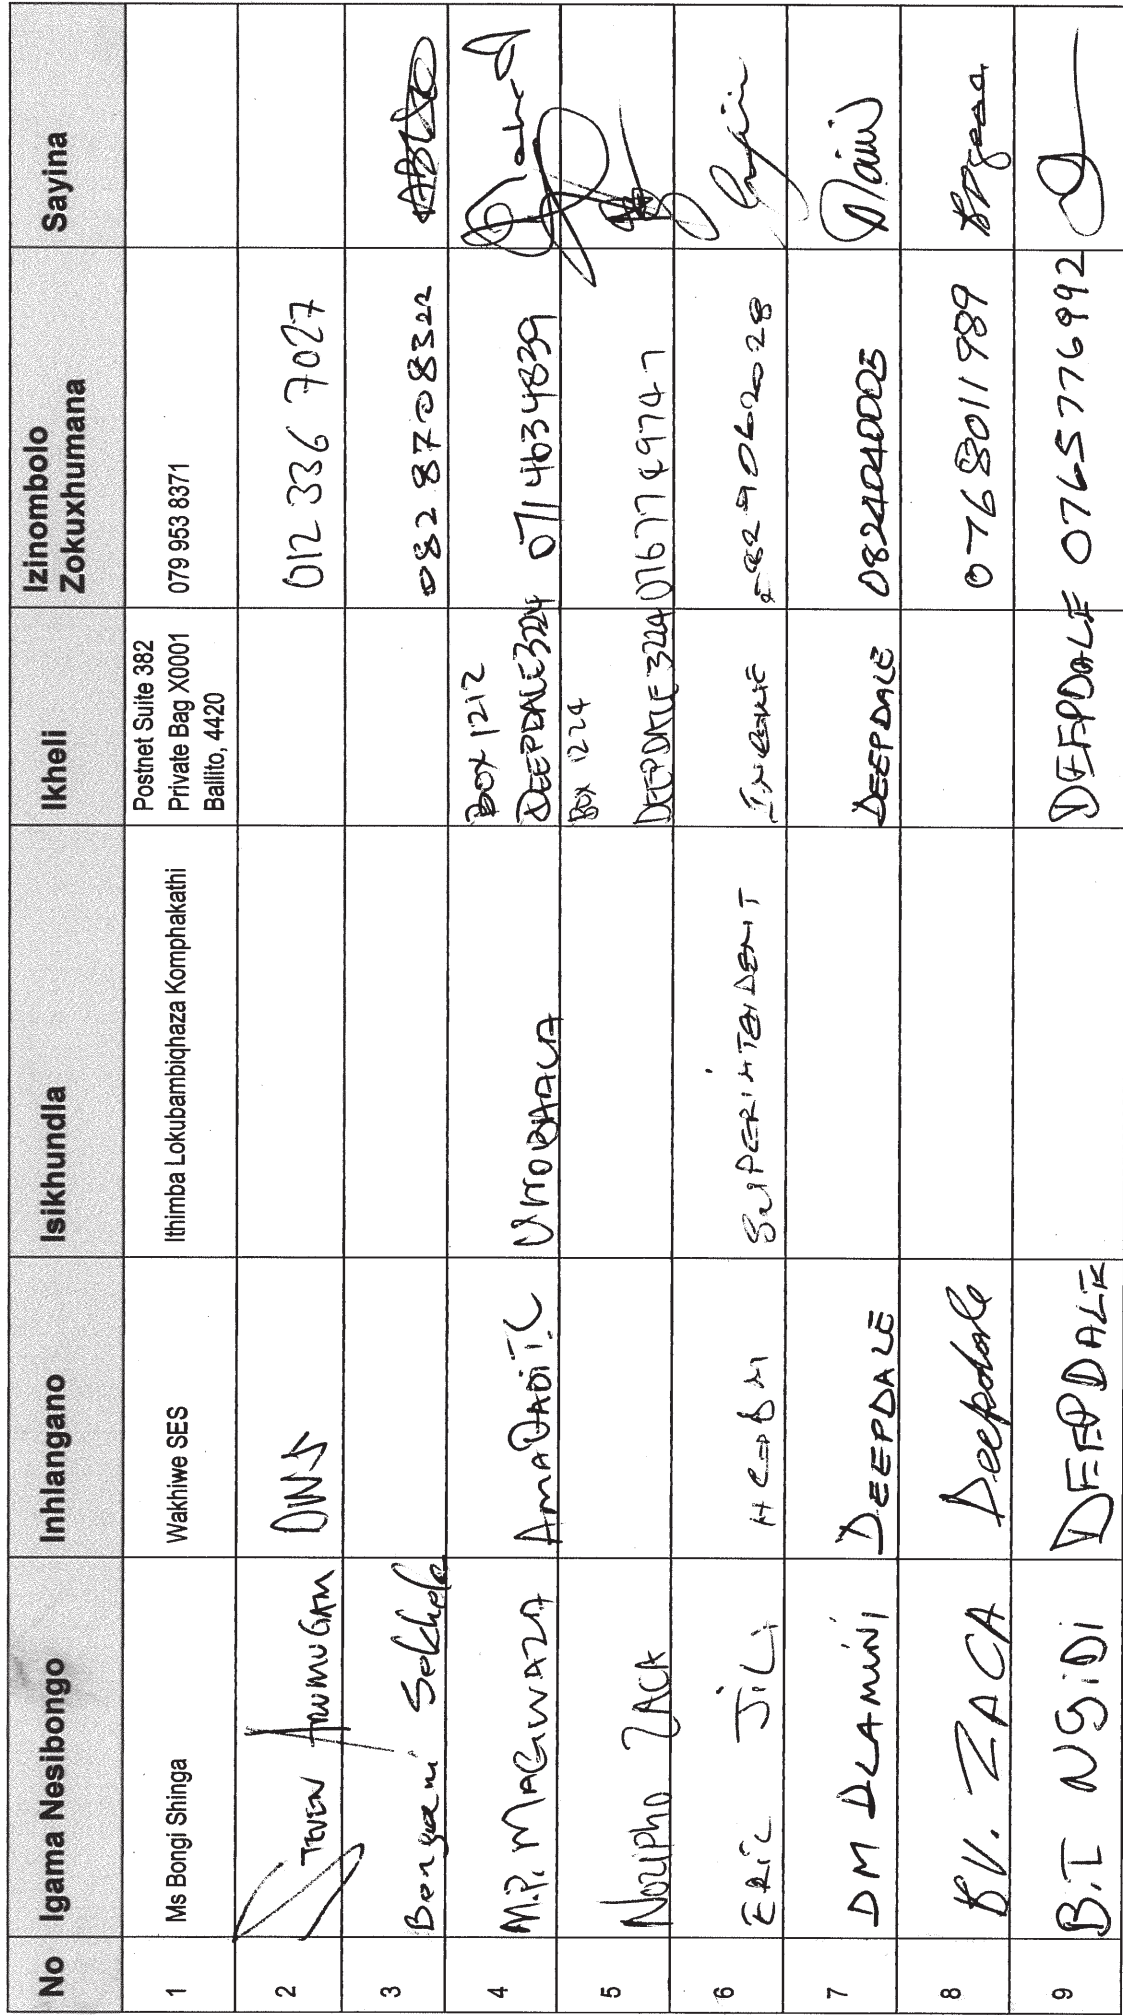 No Igama Nesibongo Inhlangano Isikhundla Ikheli Izinombolo Zokuxhumana Sayina
1 Ms Bongi Shinga Wakhiwe SES Ithimba Lokubambiqhaza Komphakathi Postnet Suite 382
Private Bag X0001
Ballito, 4420
079 953 8371
2 STEVEN ARUMUGAM DWS 012 336 7027
3 Bongani Sokhela 0828708322
4 M.P. MAGWAZA AMADADI T.C UMOBAALA BOX 1212
DEEPDALE 324 0714634839
5 NOZIPHO ZACA BOX 1224
DEEPDALE 324
6 ERIC JILI SUPERINTENDENT 0829062028
7 DM DLAMINI DEEPDALE DEEPDALE
8 B.V. ZACA Deepdale 0768011989
9 B.I NGIDI DEEPDALE DEEPDALE 0765776992